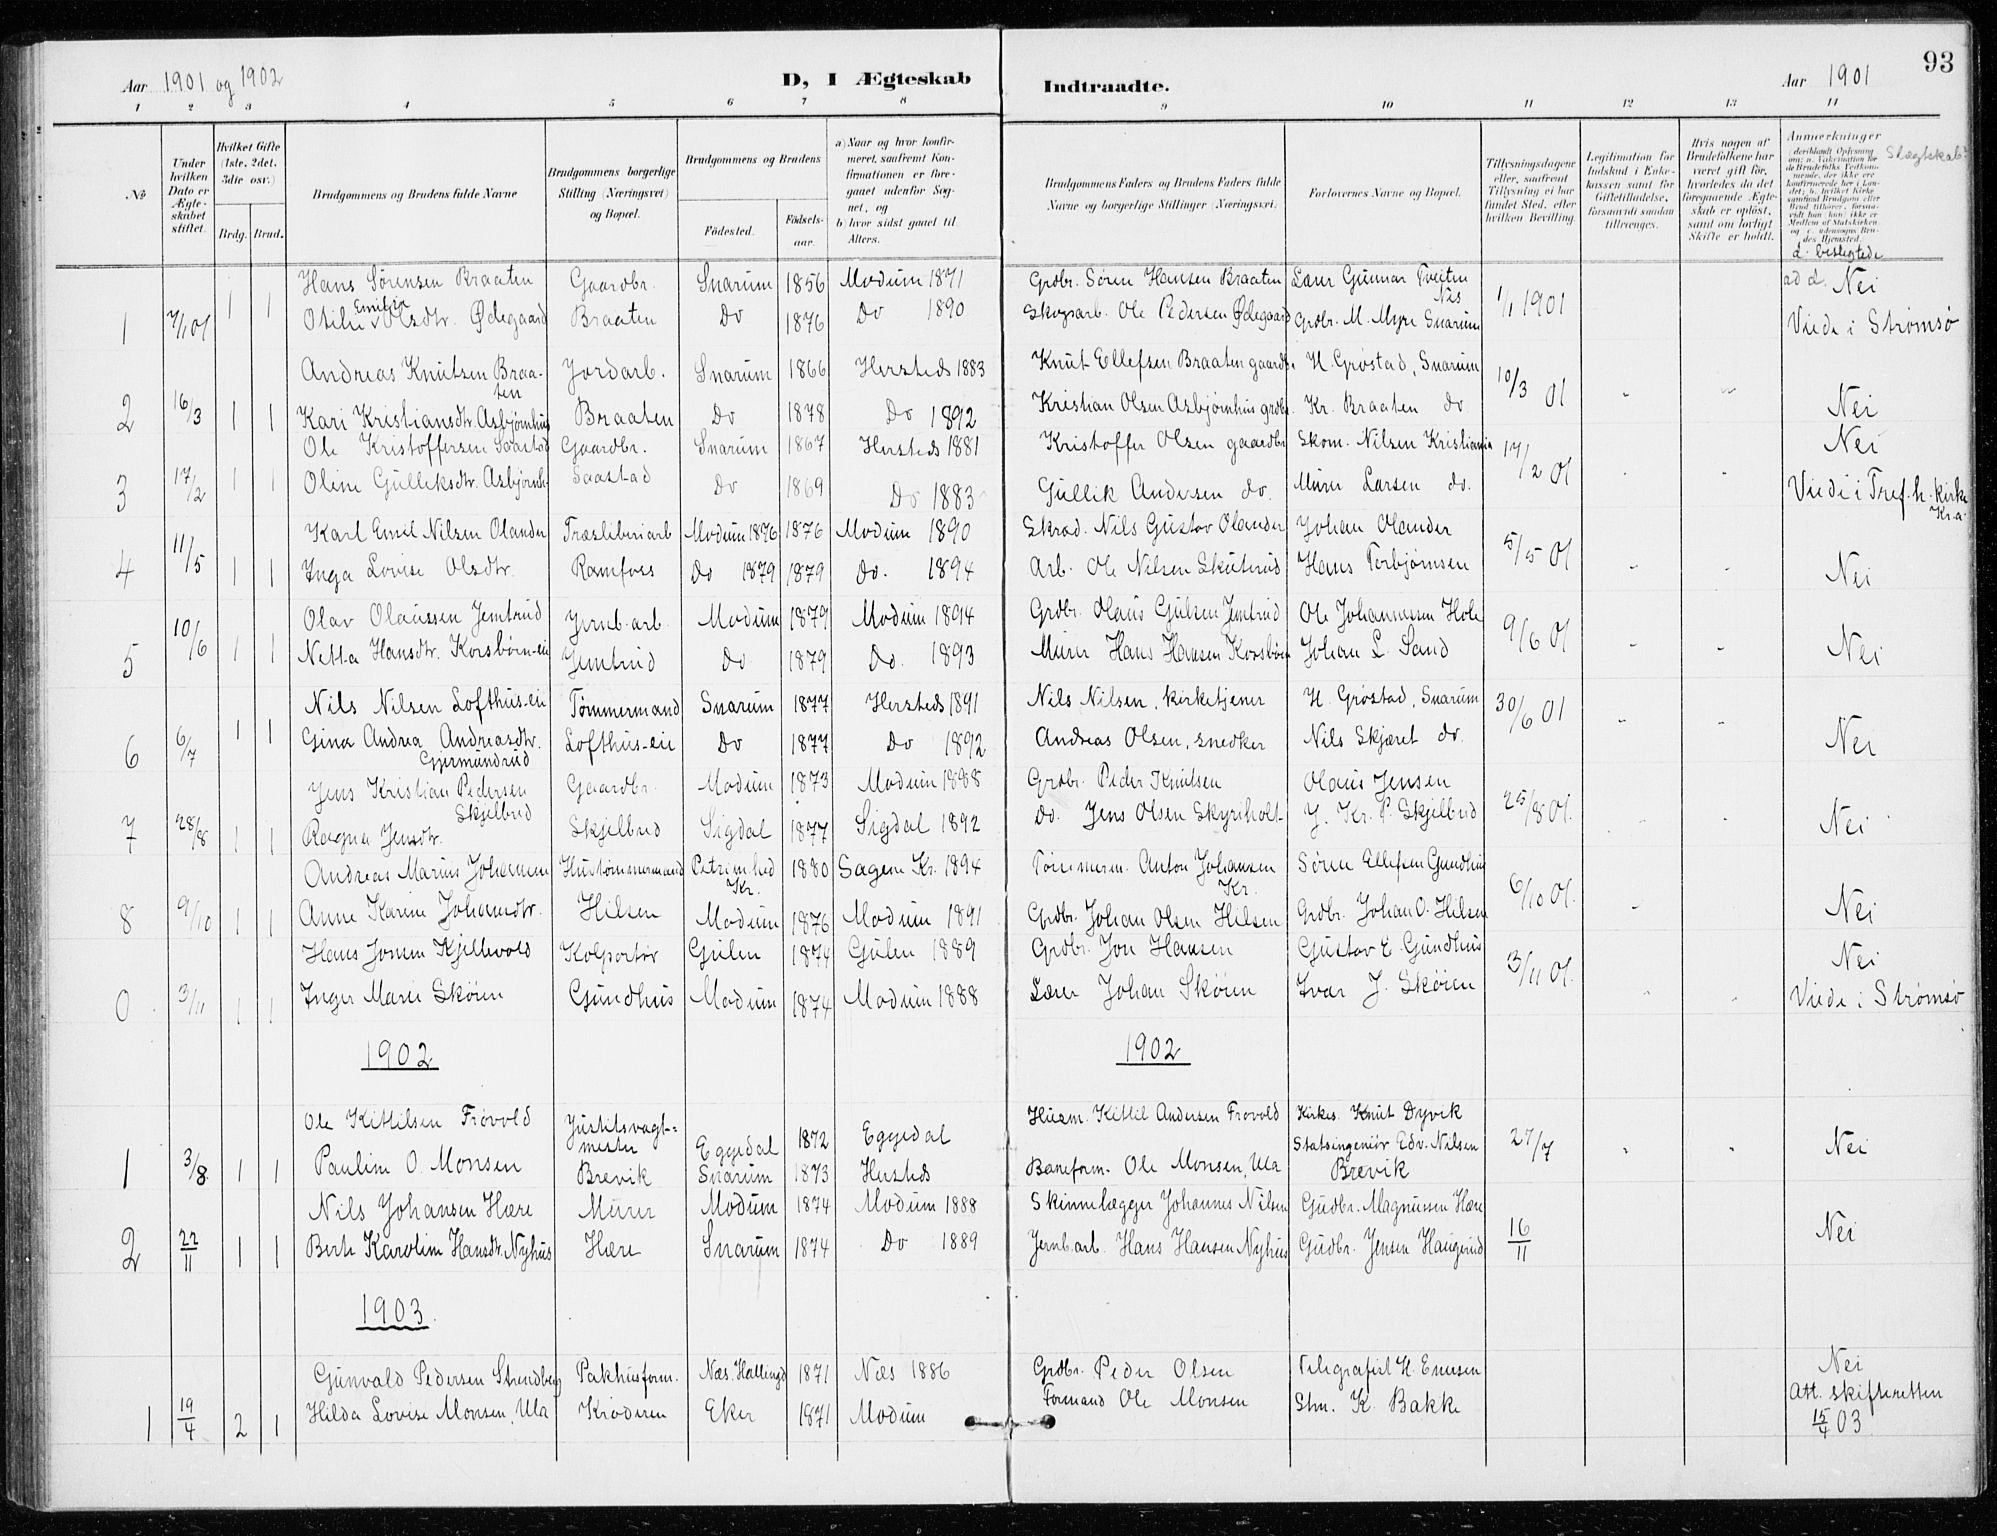 Aar 1901 og 1902
D, I Ægteskab
Indtraadte.
Aar 1901
93
1 2 3 4 5 6 7 8
9 10 11 12 13 14
No
Under hvilken Dato er Ægteskabet stiftet.
Hvilket Gifte (1ste, 2det, 3dte osv.)
Brdg. Brud.
Brudgommens og Brudens fulde Navne
Brudgommens borgerlige Stilling (Næringsvei) og Bopæl.
Brudgommens og Brudens
Fødested.
Fødsels-aar.
a) Naar og hvor konfirmeret, saafremt Konfirmationen er foregaaet udenfor Sognet, og
b) hvor sidst gaaet til Alters.
Brudgommens Faders og Brudens Faders fulde Navne og borgerlige Stillinger (Næringsvei).
Forlovernes Navne og Bopæl.
Tillysningsdagene eller, saafremt Tillysning ei har fundet Sted, efter hvilken Bevilling.
Legitimation for Indskud i Enkekassen samt for Giftetilladelse, forsaavidt saadan tiltrænges.
Hvis nogen af Brudefolkene har været gift før, hvorledes da det foregaaende Ægteskab er opløst, samt om lovligt Skifte er holdt.
Anmerkninger
Slægtskab?
d. beslegtede
Hans Sørensen Braaten Gaardbr. Snarum 1856 Modum 1871 Grdbr. Søren Hansen Braaten Lærer Gunnar Tveiten Næs ad d. Nei
1 7/1 01 1 1 Otilie Emilie Olsdtr. Ødegaard Braaten Do 1876 Do 1890 Skogsarb. Ole Pedersen Ødegaard Grdbr. M. Myre Snarum 1/1 1901 Viede i Strømsø
Andreas Knutsen Braaten Jordarb. Snarum 1866 Hersteds 1883 Knut Ellefsen Braaten gaardb. H. Grøstad, Snarum
2 16/3 1 1 Kari Kristiansdtr. Asbjørnhus Braaten Do 1878 Do 1892 Kristian Olsen Asbjørnhus grdbr. Kr. Braaten do 10/3 01 " " Nei
Ole Kristoffersen Saastad Gaardbr. Snarum 1867 Hersteds 1881 Kristoffer Olsen gaardbr Skom. Nilsen Kristiania Nei
3 17/2 1 1 Oline Gulliksdtr. Asbjørnh. Saastad Do 1869 Do 1883 Gullik Andersen do. Murer Larsen do. 17/2 01 " " Viede i Tref.h.kirke Kr.a.
Karl Emil Nilsen Olander Træsliberiarb Modum 1876 1876 Modum 1890 Skræd. Nils Gustav Olander Johan Olander
4 11/5 1 1 Inga Lovise Olsdtr. Ramfoss Do 1879 1879 Do. 1894 Arb. Ole Nilsen Skuterud Hans Torbjørnsen 5/5 01 " " Nei
Olav Olaussen Jemtrud Jernb.arb. Modum 1879 Modum 1894 Grdbr. Olaus Gulsen Jemtrud Ole Johannessen Hole
5 10/6 1 1 Netta Hansdtr. Korsbøen-eie Jemtrud Do 1879 Do. 1893 Murer Hans Hansen Korsbøen Johan L. Sand 9/6 01 " " Nei
Nils Nilsen Lofthus-eie Tømmermand Snarum 1877 Hersteds 1891 Nils Nilsen, kirketjener H. Grøstad, Snarum
6 6/7 1 1 Gina Andrea Andreasdtr. Gjermundrud Lofthus-eie Do 1877 Do 1892 Andreas Olsen, snedker Nils Skjæret do. 30/6 01 " " Nei
Jens Kristian Pedersen Skjelbred Gaardbr. Modum 1873 Modum 1888 Grdbr. Peder Knutsen Olaus Jensen
7 28/8 1 1 Ragna Jensdtr. Skjelbred Sigdal 1877 Sigdal 1892 do. Jens Olsen Skyriholt J. Kr. P. Skjelbred 25/8 01. " " Nei
Andreas Marius Johansen Hustømmermand Petri Kr. 1880 Sagene Kr. 1894 Tømmerm. Anton Johansen Kr. Søren Ellefsen Gundhus
8 9/10 1 1 Anne Karine Johansdtr. Hilsen Modum 1876 Modum 1891 Grdbr. Johan Olsen Hilsen Grdbr. Johan O. Hilsen 6/10 01. " Nei
Hans Jonsen Kjellevold Kolportør Gulen 1874 Gulen 1889 Grdbr. Jon Hansen Gustav E. Gundhus Nei
0 3/11 1 1 Inger Marie Skøien Gundhus Modum 1874 Modum 1888 Lærer Johan Skøien Ivar J. Skøien 3/11 01. " " Viede i Strømsø
1902
1902
Ole Kittilsen Frøvold Justitsvagtmester Eggedal 1872 Eggedal Husm. Kittil Andersen Frøvold Kirkes. Knut Dyvik
1 3/8 1 1 Pauline O. Monsen Brevik Snarum 1873 Hersteds Baneform. Ole Monsen, Ula Statsingeniør Edv. Nilsen Brevik 27/7 " " Nei
Nils Johansen Hære Murer Modum 1874 Modum 1888 Skinnelægger Johannes Nilsen Gudbr. Magnussen Hære
2 22/11 1 1 Berte Karoline Hansdtr. Nyhus Hære Snarum 1874 Do 1889 Jernb.arb. Hans Hansen Nyhus Gudbr. Jensen Haugerud 16/11 Nei
1903.
Gunvald Pedersen Strandberg Pakhusform. Næs. Hallingd 1871 Næs 1886 Grdbr. Peder Olsen Telegrafist H. Enersen Nei
1 19/4 2 1 Hilda Lovise Monsen, Ula Krøderen Eker 1871 Modum Formand Ole Monsen Stm. K. Bakke Att. skifteretten 15/4 03